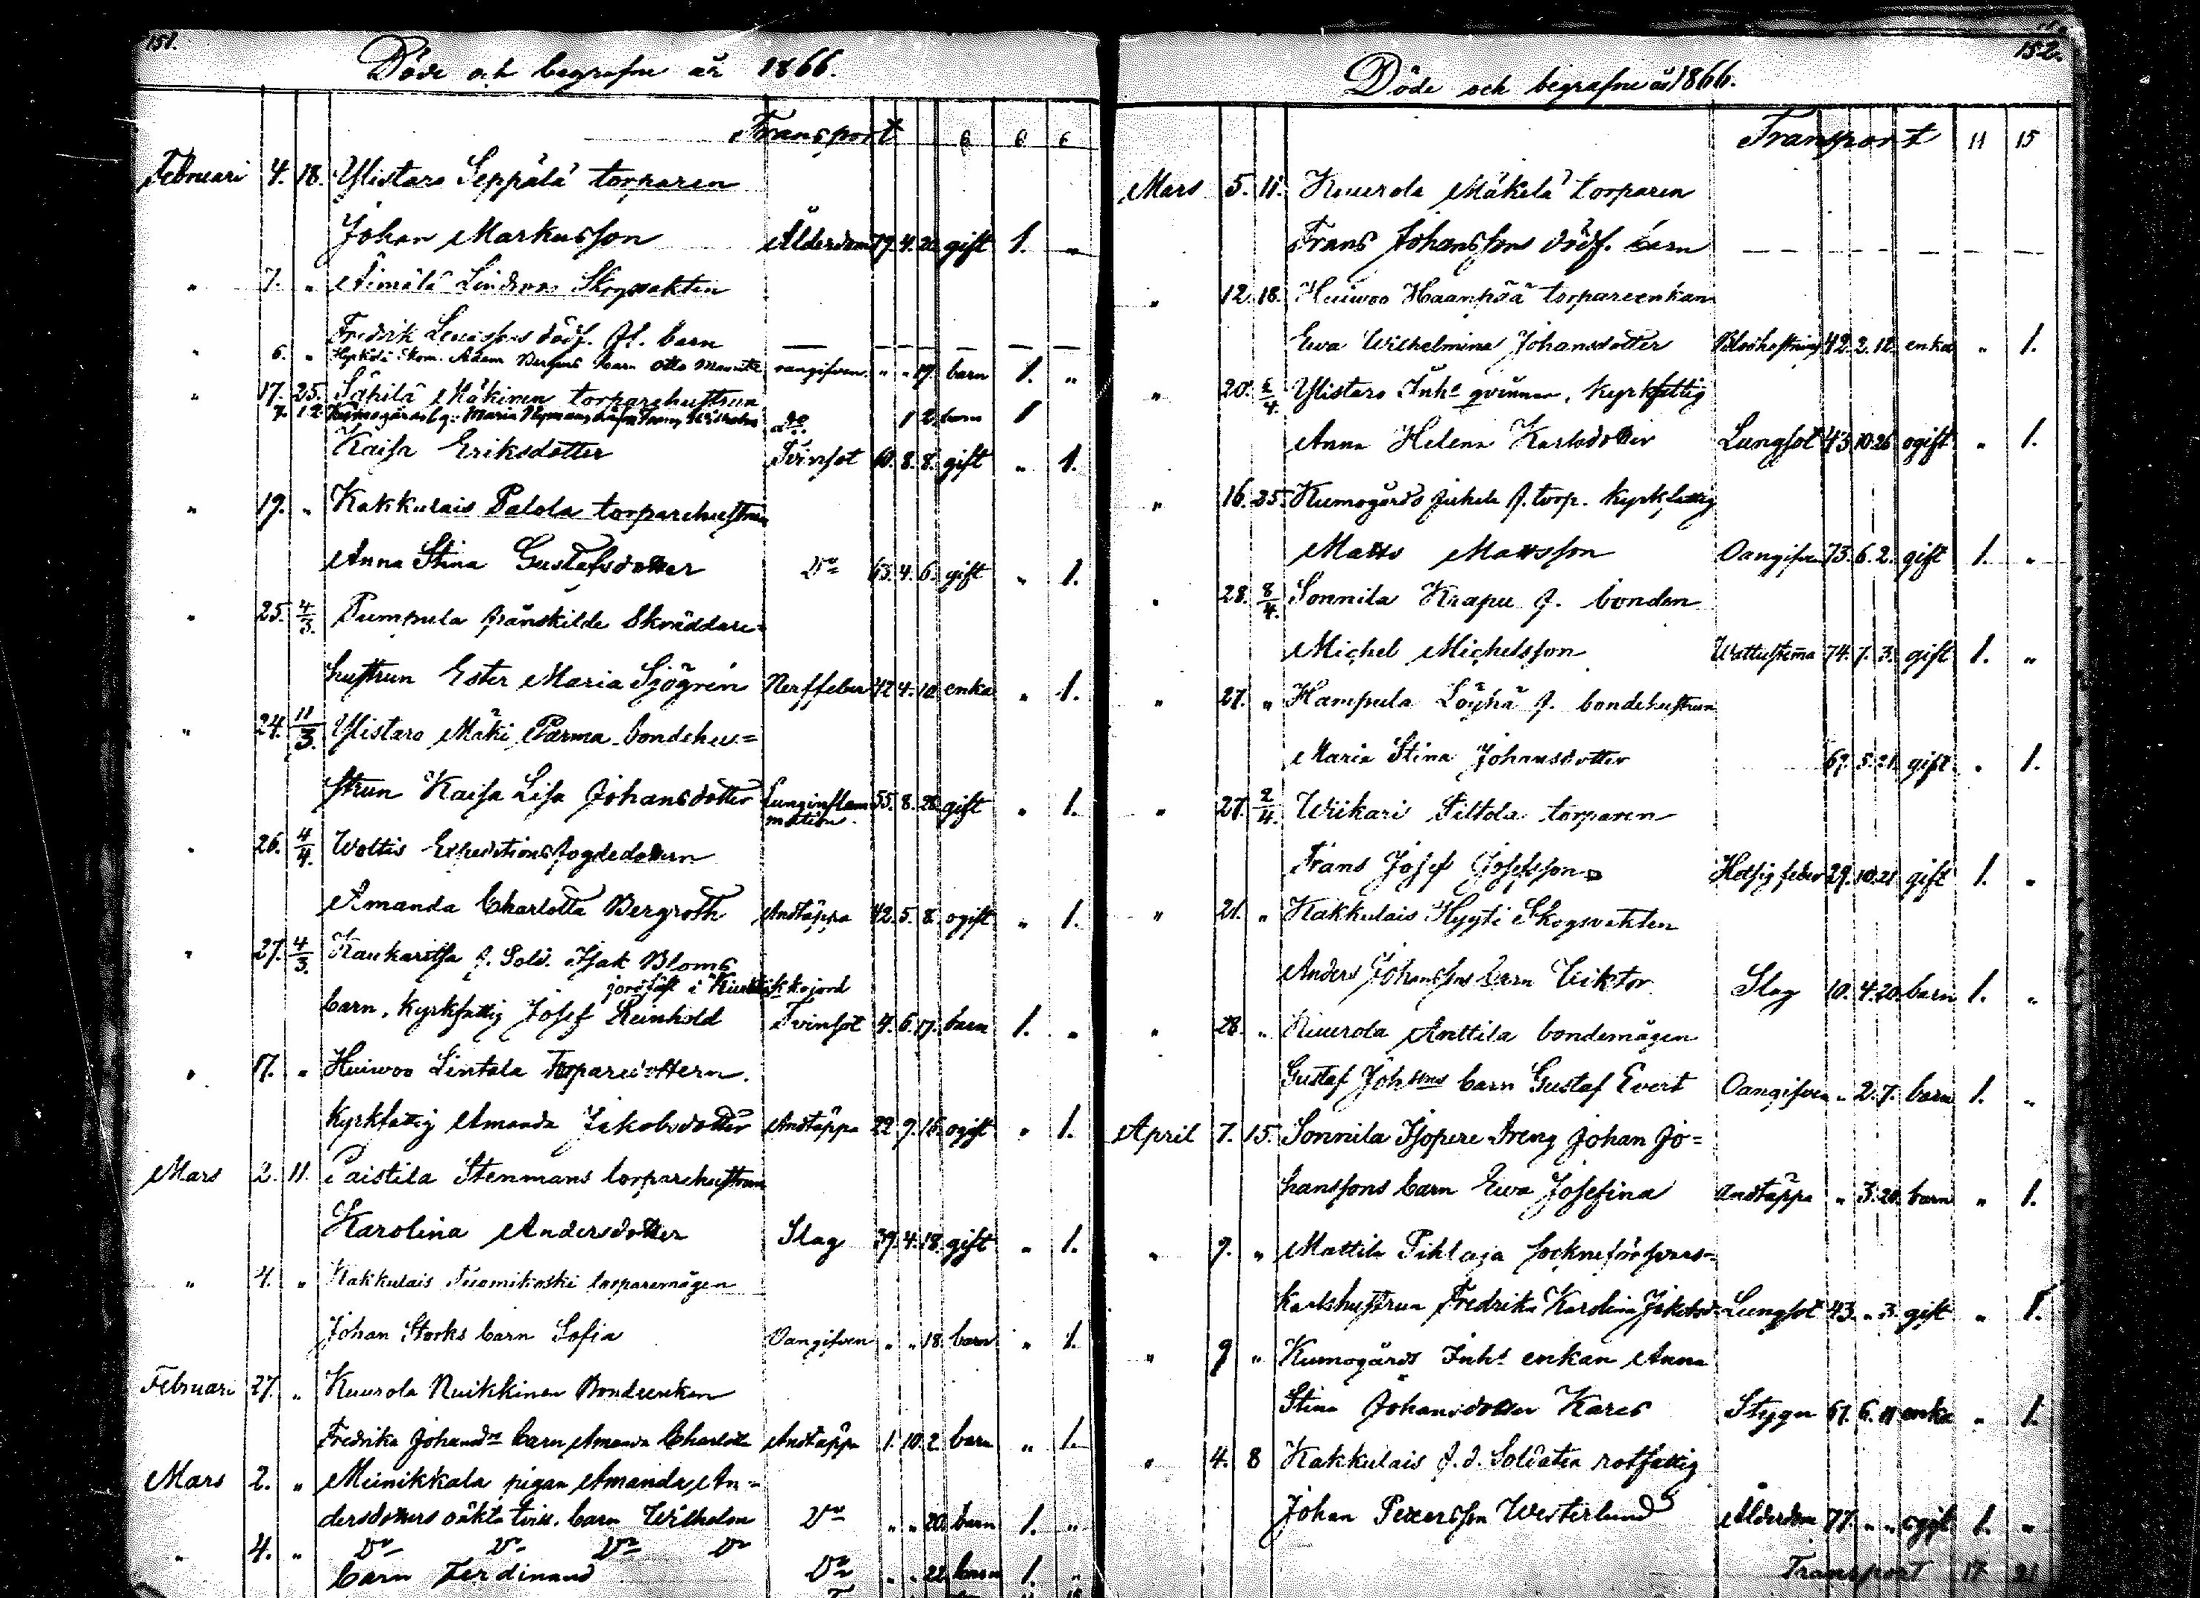 151.
Döde och begrafne år 1866.
Transport 6 6 6
Februari 4. 18. Ylistaro Seppälä torparen
Johan Markusson Ålderdom 79. 4. 20 gift 1. "
" 7. " Skogvakten
Fredrik dödf. barn — — — —
" 6. " Adam Bergens barn Otto oangifven " " 19. barn 1. "
" 17. 25. Säkilä Mäkinen torparehustrun
7. 12 Kumogårds Maria Nymans do 1 2 barn 1
Kaisa Eriksdotter Tvinsot 60. 8. 8. gift " 1.
" 19. " Kakkulais Palola torparehustrun
Anna Stina Gustafsdotter Do 63. 4. 6. gift " 1.
" 25. 4/3. Pumpula frånskilde Skräddare=
hustrun Ester Maria Sjögren Nerffeber 42 4. 10. enka " 1.
" 24. 11/3. Ylistaro Mäki Parma bondehu=
strun Kaisa Lisa Johansdotter Lunginflam 55. 8. 28. gift " 1.
mation.
" 26. 4/4. Wottis Expeditionsfogdedottern
Amanda Charlotta Bergroth Andtäppa 42. 5. 8. ogift " 1.
" 27. 4/3. Kaukaritsa f. Sold. Isak Bloms
jordfäst i
barn, kyrkfattig Josef Reinhold Tvinsot 4. 6. 17. barn 1. "
" 17. " Huiwoo Lintala Torparedottern.
kyrkfattig Amanda Jakobsdotter Andtäppa 22 9. 16. ogift " 1.
Mars 2. 11. Paistila Stenmans torparehustrun
Karolina Andersdotter Slag 39. 4. 18. gift " 1.
" 4. " Kakkulais Tuomikoski torparemågen
Johan Storks barn Sofia Oangifven " " 18. barn " 1.
Februari 27. " Kuurola Nuikkinen Bondeenkan
Fredrika Johansdr barn Amanda Charlotta Andtäppa 1. 10. 2. barn " 1.
Mars 2. " Meinikkala pigan Amanda An=
dersdotters oäkta tvill. barn Wilhelm Do " " 20. barn 1. "
" 4. " Do Do Do Do
barn Ferdinand Do " " 22 barn 1. "
152.
Döde och begrafne år 1866.
Transport 11 15
Mars 5. 11. Kuurola Mäkelä torparen
Frans Johanssons dödf. barn — — — — — —
" 12. 18. Huiwoo Haanpää torpareenkan
Ewa Wilhelmina Johansdotter Blodhostning 42. 2. 12. enka " 1.
" 20. 2/4. Ylistaro Inhs qvinnan, kyrkfattig
Anna Helena Karlsdotter Lungsot 43 10 26 ogift " 1.
" 16. 25. Kumogårds f. torp. kyrkfattig
Matts Mattsson Oangifven 73. 6. 2. gift 1. "
" 28. 8/4. Sonnila Krapu f. bonden
Michel Michelsson 74. 7. 3. gift 1. "
" 27. " Hampula Löyhä f. bondehustrun
Maria Stina Johansdotter 67. 5. 21. gift " 1.
" 27. 2/4. Wiikari Siltola torparen
Frans Josef Josefsson Hetsig feber 29. 10. 21 gift 1. "
" 21. " Kakkulais Hyyti Skogsvakten
Anders Johanssons barn Viktor Slag 10. 4. 20. barn 1. "
" 28. " Kuurola Anttila bondemågen
Gustaf Johssons barn Gustaf Evert Oangifven " 2. 7. barn 1. "
April 7. 15. Sonnila Isopere dreng Johan Jo=
hanssons barn Ewa Josefina Andtäppa " 3. 20. barn " 1.
" 9. " Mattila Pihlaja sockneförsvars=
karlshustrun Fredrika Karolina Jakobsd. Lungsot 43. " 3. gift " 1.
" 9 " Kumogårds Inhs enkan Anna
Stina Johansdotter Kares Stygn 67. 6. 11 enka " 1.
" 4. 8 Kakkulais f. d. Soldaten rotfattig
Johan Petersson Westerlund Ålderdom 77. " " ogift 1. "
Transport 17 21